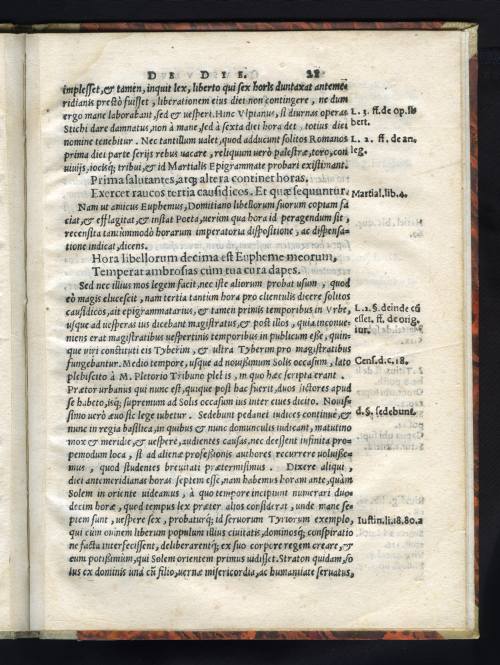 DE DIE. 28
implesset, & tamen, inquit lex, liberto qui sex horis duntaxat anteme-
ridianis prestò fuisset, liberationem eius diei non contingere, ne dum
ergo mane laborabant, sed & vesperi. Hinc Vlpianus, si diurnas operas
Stichi dare damnatus, non à mane, sed à sexta diei hora det, totius diei
nomine tenebitur. Nec tantillum valet, quod adducunt solitos Romanos
prima diei parte serijs rebus vacare, reliquum verò palestræ, toro, con
viuijs, iocisq; tribui, & id Martialis Epigrammate probari existimant.
Prima salutantes, atq; altera continet horas.
Exercet raucos tertia causidicos. Et quæ sequuntur.
Nam ut amicus Euphemus, Domitiano libellorum suorum coptam fa
ciat, & efflagitat, & instat Poeta, uerùm qua hora id peragendum sit,
recensita tantummodò horarum imperatoria dispositione, ac dispensa-
tione indicat, dicens.
Hora libellorum decima est Eupheme meorum,
Temperat ambrosias cùm tua cura dapes.
Sed nec illius mos legem facit, nec iste aliorum probat usum, quod
eò magis elucescit, nam tertia tantùm hora pro clientulis dicere solitos
causidicos, ait epigrammatarius, & tamen primis temporibus in Vrbe,
usque ad uesperas ius dicebant magistratus, & post illos, quia inconue-
niens erat magistratibus uespertinis temporibus in publicum esse, quin-
que uiri constituti cis Tyberim, & ultra Tyberim pro magistratibus
fungebantur. Medio tempore, usque ad nouissimum Solis occasum, lato
plebiscito à M. Pletorio Tribuno plebis, in quo hæc scripta erant.
Prætor urbanus qui nunc est, quique post hac fuerit, duos lictores apud
se habeto, isq; supremum ad Solis occasum ius inter ciues dicito. Nouis-
simo uerò æuo sic lege iubetur. Sedebunt pedanei iudices continuè, &
nunc in regia basilica, in quibus & nunc domunculis iudicant, matutino
mox & meridie, & uesperè, audientes causas, nec deessent infinita pro-
pemodum loca, si ad alienæ professionis authores recurrere uoluisse-
mus, quod studentes breuitati prætermisimus. Dixere aliqui,
diei antemeridianas horas septem esse, nam habemus horam ante, quàm
Solem in oriente uideamus, à quo tempore incipiunt numerari duo-
decim horæ, quod tempus lex præter alios considerat, unde mane se-
ptem sunt, uespere sex, probaturq; id seruorum Tyriorum exemplo,
qui cùm omnem liberum populum illius ciuitatis, dominosq; conspiratio
ne facta interfecissent, deliberarentq; ex suo corpore regem creare, &
eum potissimùm, qui Solem orientem primus uidisset. Straton quidam, so
lus ex dominis unà cū filio, uernæ misericordia, ac humanitate seruatus,
L. 3. ff. de op. li
bert.
L. 2. ff. de an.
leg.
Martial. lib. 4.
L. 2. §. deinde cū
esset. ff. de orig.
iur.
Cens. d. c. 18.
d. §. sedebunt.
Iustin. li. 18. 80. a